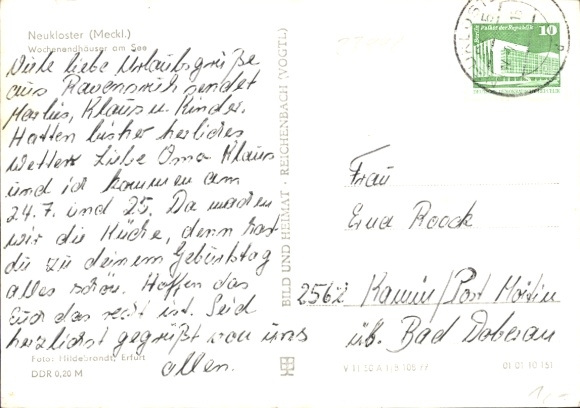 Neukloster (Meckl.)
Wochenendhäuser am See
Viele liebe Urlaubsgrüße
aus Ravensruh sendet
Marlies, Klaus u. Kinder.
Hatten bisher herliches
Wetter. Liebe Oma Klaus
und ich kommen am
24.7. und 25. Da machen
wir die Küche, denn hast
du zu deinem Geburtstag
alles schön. Hoffen das
Euch das recht ist. Seid
herzlichst gegrüßt von uns
allen.
Foto: Hildebrandt, Erfurt
DDR 0,20 M
BILD UND HEIMAT · REICHENBACH (VOGTL)
10
Palast der Republik
Frau
Erna Roock
2562 Kamin/Post Moitin
üb. Bad Doberan
V 11 50 A 1/B 105 77
01 01 10 151